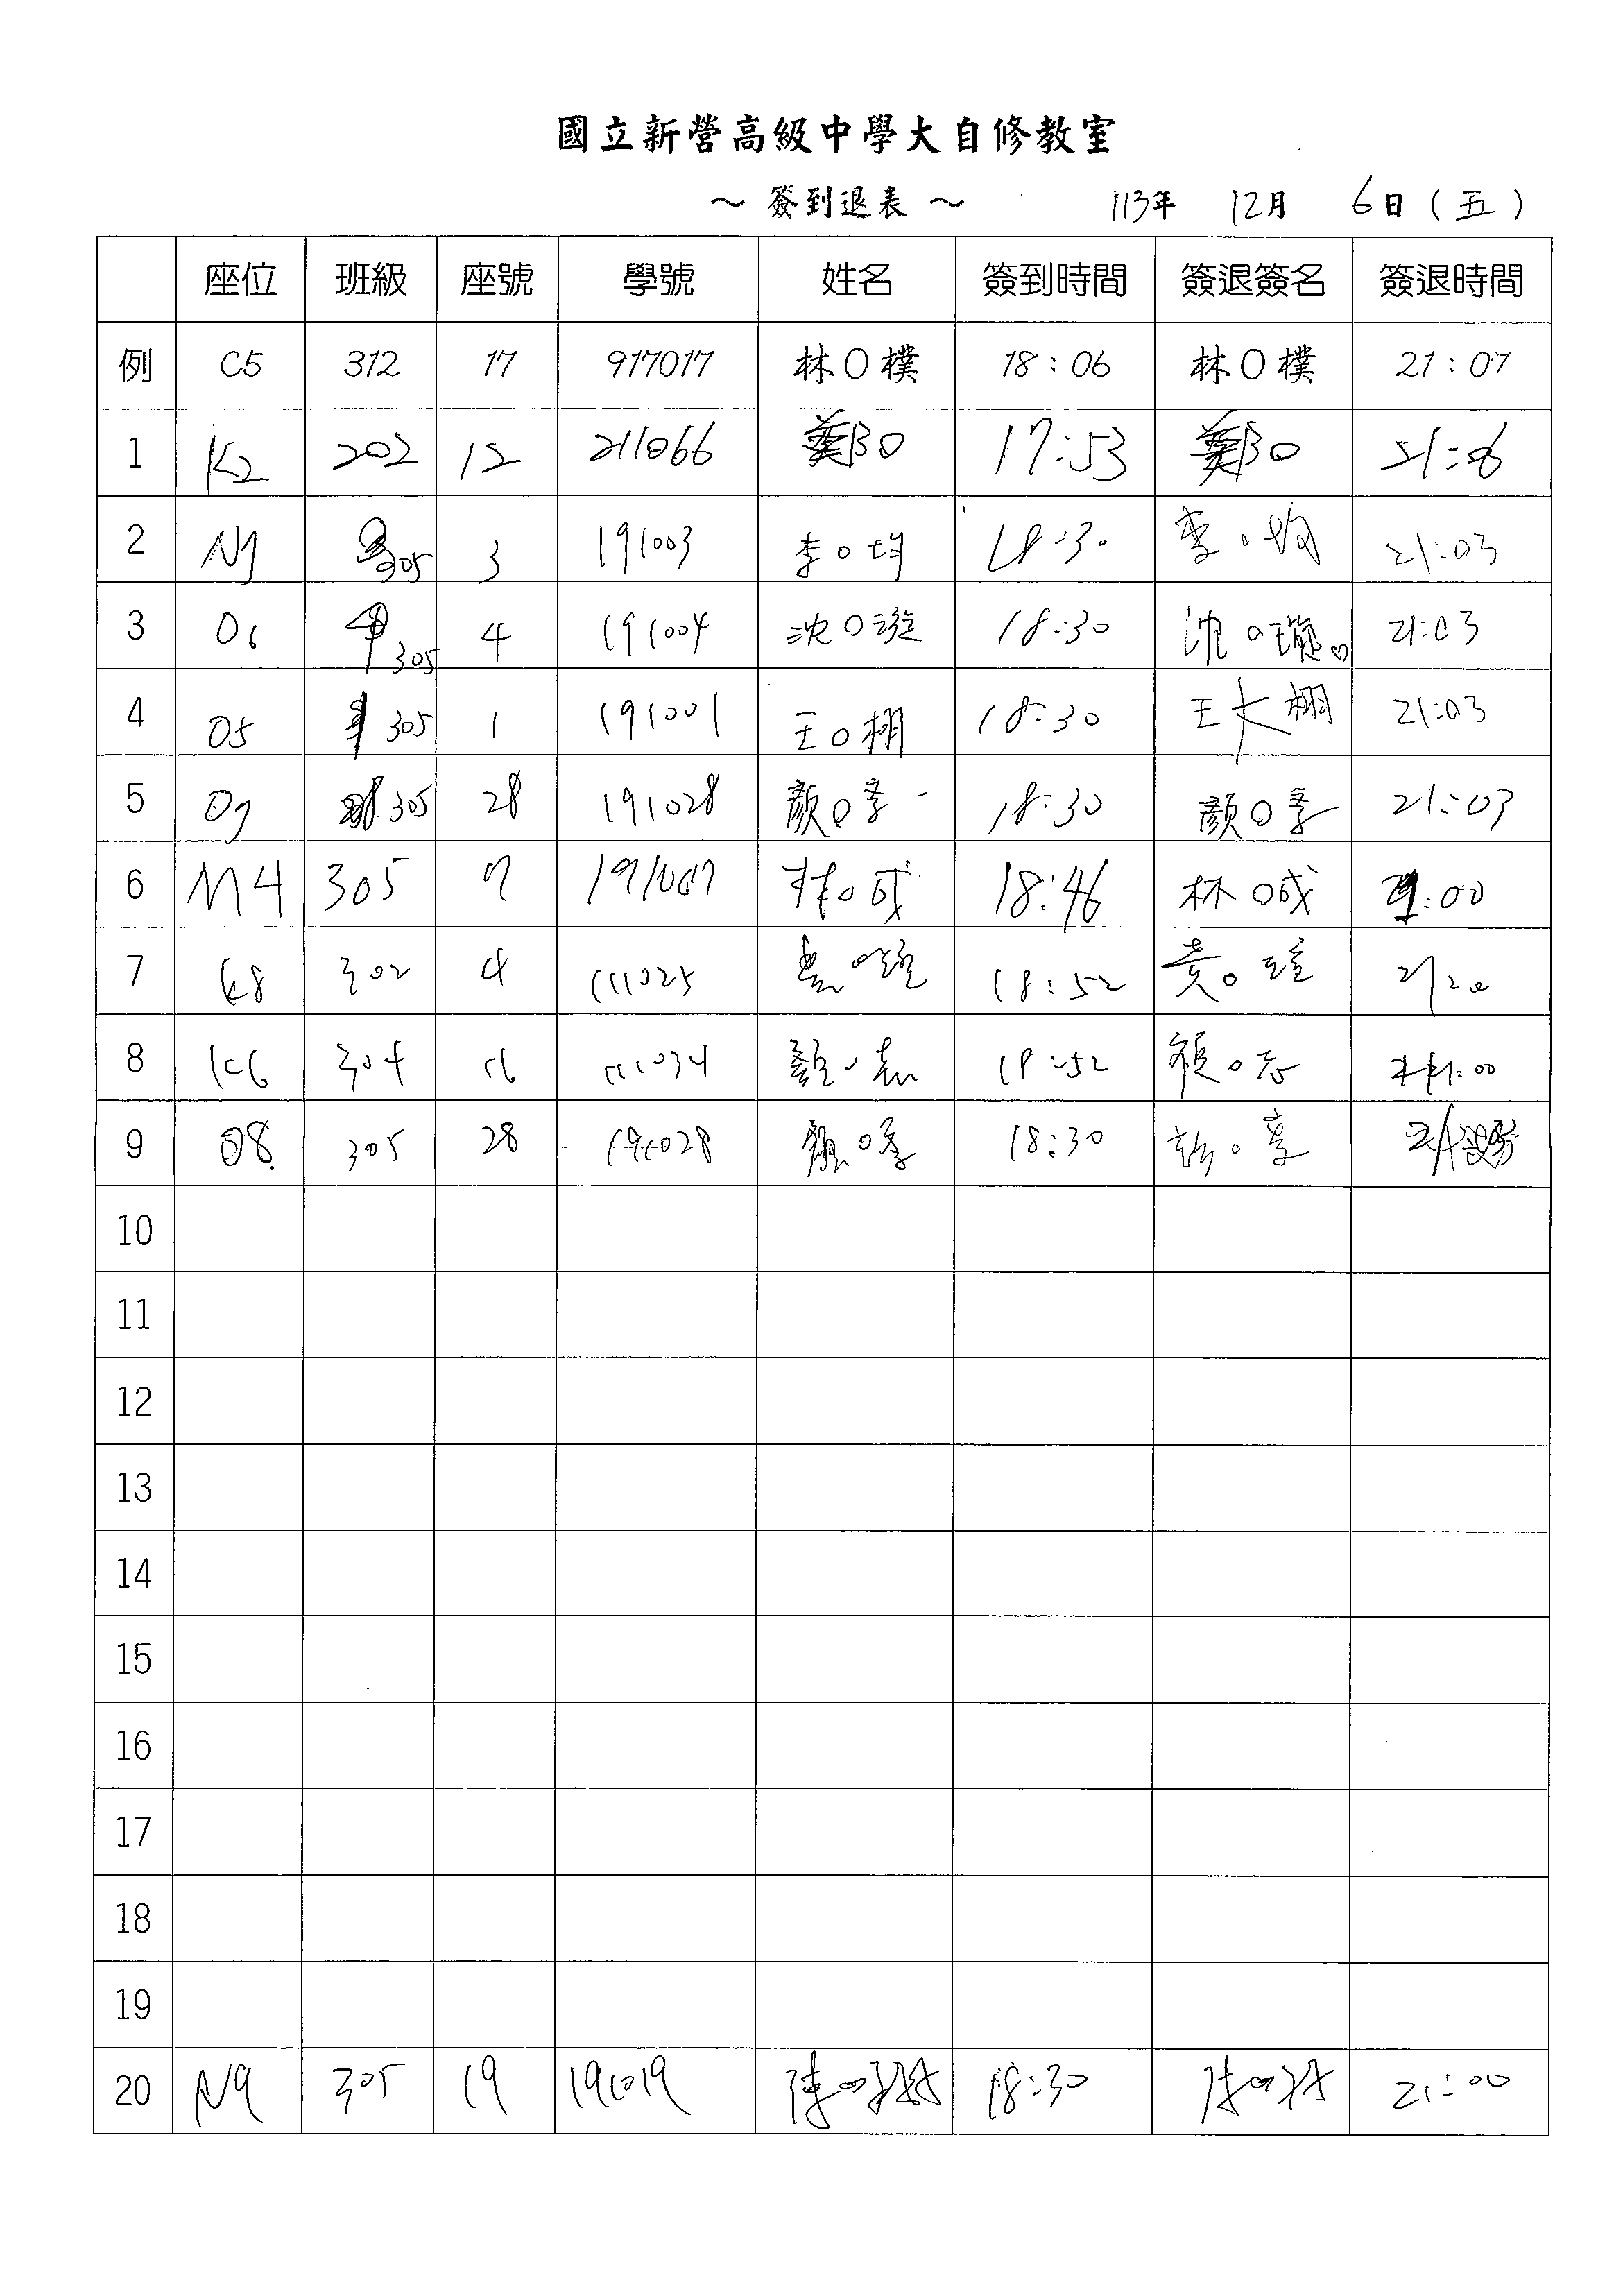 國立新營高級中學大自修教室
～ 簽到退表 ～ 113年 12月 6日 ( 五 )
座位 班級 座號 學號 姓名 簽到時間 簽退簽名 簽退時間
例 C5 312 17 917017 林O樸 18:06 林O樸 21:07
1 K2 202 12 211066 鄭O 17:53 鄭O
2 305 3 191003 李O均 18:30 李O均 21:03
3 O6 305 4 191004 沈O璇 18:30 沈O璇 21:03
4 O5 305 1 191001 王O栩 18:30 王大栩 21:03
5 305 28 191028 顏O季 18:30 顏O季 21:03
6 M4 305 7 191007 林O成 18:46 林O成 :00
7 K8 302 4 111025 黃O瑄 18:52 黃O瑄
8 K6 304 16 111034 顏O志 18:52 O志
9 O8 305 28 191028 顏O季 18:30
10
11
12
13
14
15
16
17
18
19
20 N9 305 19 191019 陳O 18:30 陳O 21:00